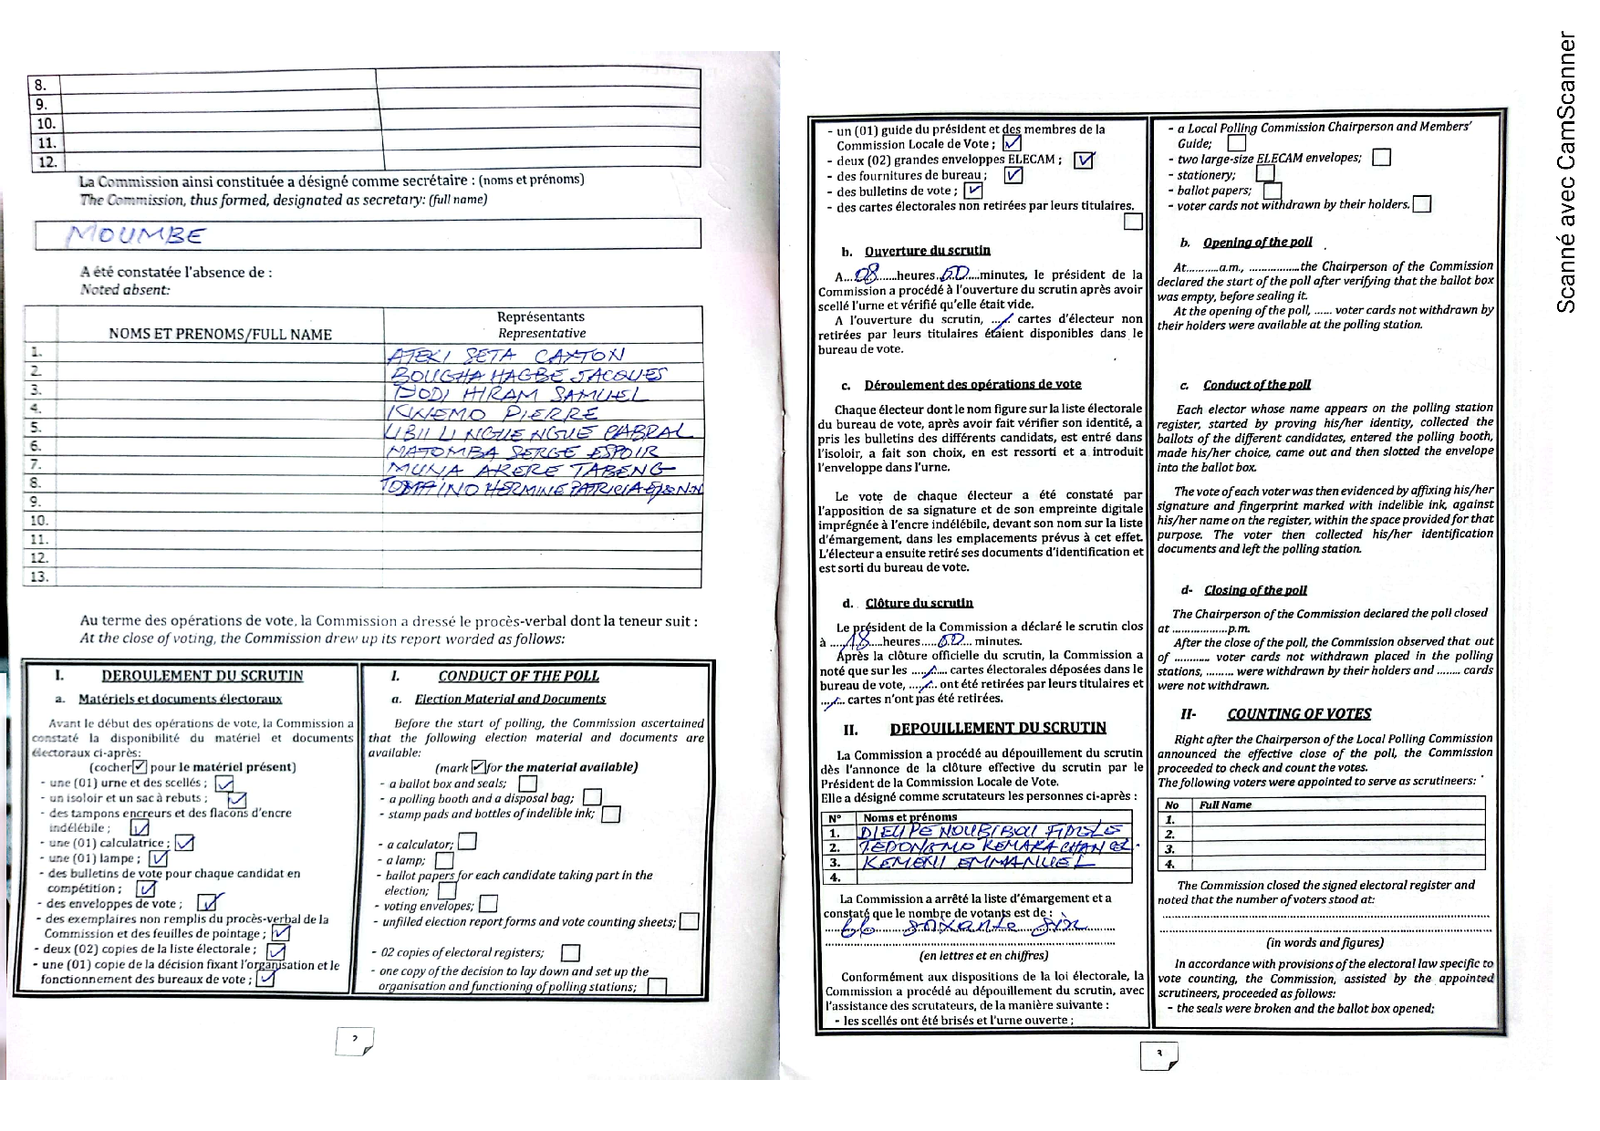 8.
9.
10.
11.
12.
La Commission ainsi constituée a désigné comme secrétaire : (noms et prénoms)
The Commission, thus formed, designated as secretary: (full name)
MOUMBE
A été constatée l'absence de :
Noted absent:
NOMS ET PRENOMS/FULL NAME
Représentants
Representative
1. ATEKI SETA CAXTON
2. BOUGHA HAGBE JACQUES
3. HIRAM SAMUEL
4. PIERRE
5. LIBII LI NGUE NGUE CABRAL
6. MATOMBA SERGE ESPOIR
7. MUNA AKERE TABENG
8. TOMAINO HERMINE PATRICIA
9.
10.
11.
12.
13.
Au terme des opérations de vote, la Commission a dressé le procès-verbal dont la teneur suit :
At the close of voting, the Commission drew up its report worded as follows:
I. DEROULEMENT DU SCRUTIN
a. Matériels et documents électoraux
Avant le début des opérations de vote, la Commission a
constaté la disponibilité du matériel et documents
électoraux ci-après:
(cocher ✓ pour le matériel présent)
- une (01) urne et des scellés ; ✓
- un isoloir et un sac à rebuts ; ✓
- des tampons encreurs et des flacons d'encre
indélébile ; ✓
- une (01) calculatrice ; ✓
- une (01) lampe ; ✓
- des bulletins de vote pour chaque candidat en
compétition ; ✓
- des enveloppes de vote ; ✓
- des exemplaires non remplis du procès-verbal de la
Commission et des feuilles de pointage ; ✓
- deux (02) copies de la liste électorale ; ✓
- une (01) copie de la décision fixant l'organisation et le
fonctionnement des bureaux de vote ; ✓
I. CONDUCT OF THE POLL
a. Election Material and Documents
Before the start of polling, the Commission ascertained
that the following election material and documents are
available:
(mark ✓ for the material available)
- a ballot box and seals;
- a polling booth and a disposal bag;
- stamp pads and bottles of indelible ink;
- a calculator;
- a lamp;
- ballot papers for each candidate taking part in the
election;
- voting envelopes;
- unfilled election report forms and vote counting sheets;
- 02 copies of electoral registers;
- one copy of the decision to lay down and set up the
organisation and functioning of polling stations;
2
- un (01) guide du président et des membres de la
Commission Locale de Vote ; ✓
- deux (02) grandes enveloppes ELECAM ; ✓
- des fournitures de bureau ; ✓
- des bulletins de vote ; ✓
- des cartes électorales non retirées par leurs titulaires.
b. Ouverture du scrutin
A...08......heures..00....minutes, le président de la
Commission a procédé à l'ouverture du scrutin après avoir
scellé l'urne et vérifié qu'elle était vide.
A l'ouverture du scrutin, ../.. cartes d'électeur non
retirées par leurs titulaires étaient disponibles dans le
bureau de vote.
c. Déroulement des opérations de vote
Chaque électeur dont le nom figure sur la liste électorale
du bureau de vote, après avoir fait vérifier son identité, a
pris les bulletins des différents candidats, est entré dans
l'isoloir, a fait son choix, en est ressorti et a introduit
l'enveloppe dans l'urne.
Le vote de chaque électeur a été constaté par
l'apposition de sa signature et de son empreinte digitale
imprégnée à l'encre indélébile, devant son nom sur la liste
d'émargement, dans les emplacements prévus à cet effet.
L'électeur a ensuite retiré ses documents d'identification et
est sorti du bureau de vote.
d. Clôture du scrutin
Le président de la Commission a déclaré le scrutin clos
à ....18...heures....00... minutes.
Après la clôture officielle du scrutin, la Commission a
noté que sur les ..../.. cartes électorales déposées dans le
bureau de vote, ..../.. ont été retirées par leurs titulaires et
../.. cartes n'ont pas été retirées.
II. DEPOUILLEMENT DU SCRUTIN
La Commission a procédé au dépouillement du scrutin
dès l'annonce de la clôture effective du scrutin par le
Président de la Commission Locale de Vote.
Elle a désigné comme scrutateurs les personnes ci-après :
N° Noms et prénoms
1.
2.
3. EMMANUEL
4.
La Commission a arrêté la liste d'émargement et a
constaté que le nombre de votants est de :
66 soixante six
(en lettres et en chiffres)
Conformément aux dispositions de la loi électorale, la
Commission a procédé au dépouillement du scrutin, avec
l'assistance des scrutateurs, de la manière suivante :
- les scellés ont été brisés et l'urne ouverte ;
- a Local Polling Commission Chairperson and Members'
Guide;
- two large-size ELECAM envelopes;
- stationery;
- ballot papers;
- voter cards not withdrawn by their holders.
b. Opening of the poll
At..........a.m., ................the Chairperson of the Commission
declared the start of the poll after verifying that the ballot box
was empty, before sealing it.
At the opening of the poll, ...... voter cards not withdrawn by
their holders were available at the polling station.
c. Conduct of the poll
Each elector whose name appears on the polling station
register, started by proving his/her identity, collected the
ballots of the different candidates, entered the polling booth,
made his/her choice, came out and then slotted the envelope
into the ballot box.
The vote of each voter was then evidenced by affixing his/her
signature and fingerprint marked with indelible ink, against
his/her name on the register, within the space provided for that
purpose. The voter then collected his/her identification
documents and left the polling station.
d- Closing of the poll
The Chairperson of the Commission declared the poll closed
at ..................p.m.
After the close of the poll, the Commission observed that out
of ........... voter cards not withdrawn placed in the polling
stations, ......... were withdrawn by their holders and ........ cards
were not withdrawn.
II- COUNTING OF VOTES
Right after the Chairperson of the Local Polling Commission
announced the effective close of the poll, the Commission
proceeded to check and count the votes.
The following voters were appointed to serve as scrutineers:
No Full Name
1.
2.
3.
4.
The Commission closed the signed electoral register and
noted that the number of voters stood at:
(in words and figures)
In accordance with provisions of the electoral law specific to
vote counting, the Commission, assisted by the appointed
scrutineers, proceeded as follows:
- the seals were broken and the ballot box opened;
3
Scanné avec CamScanner